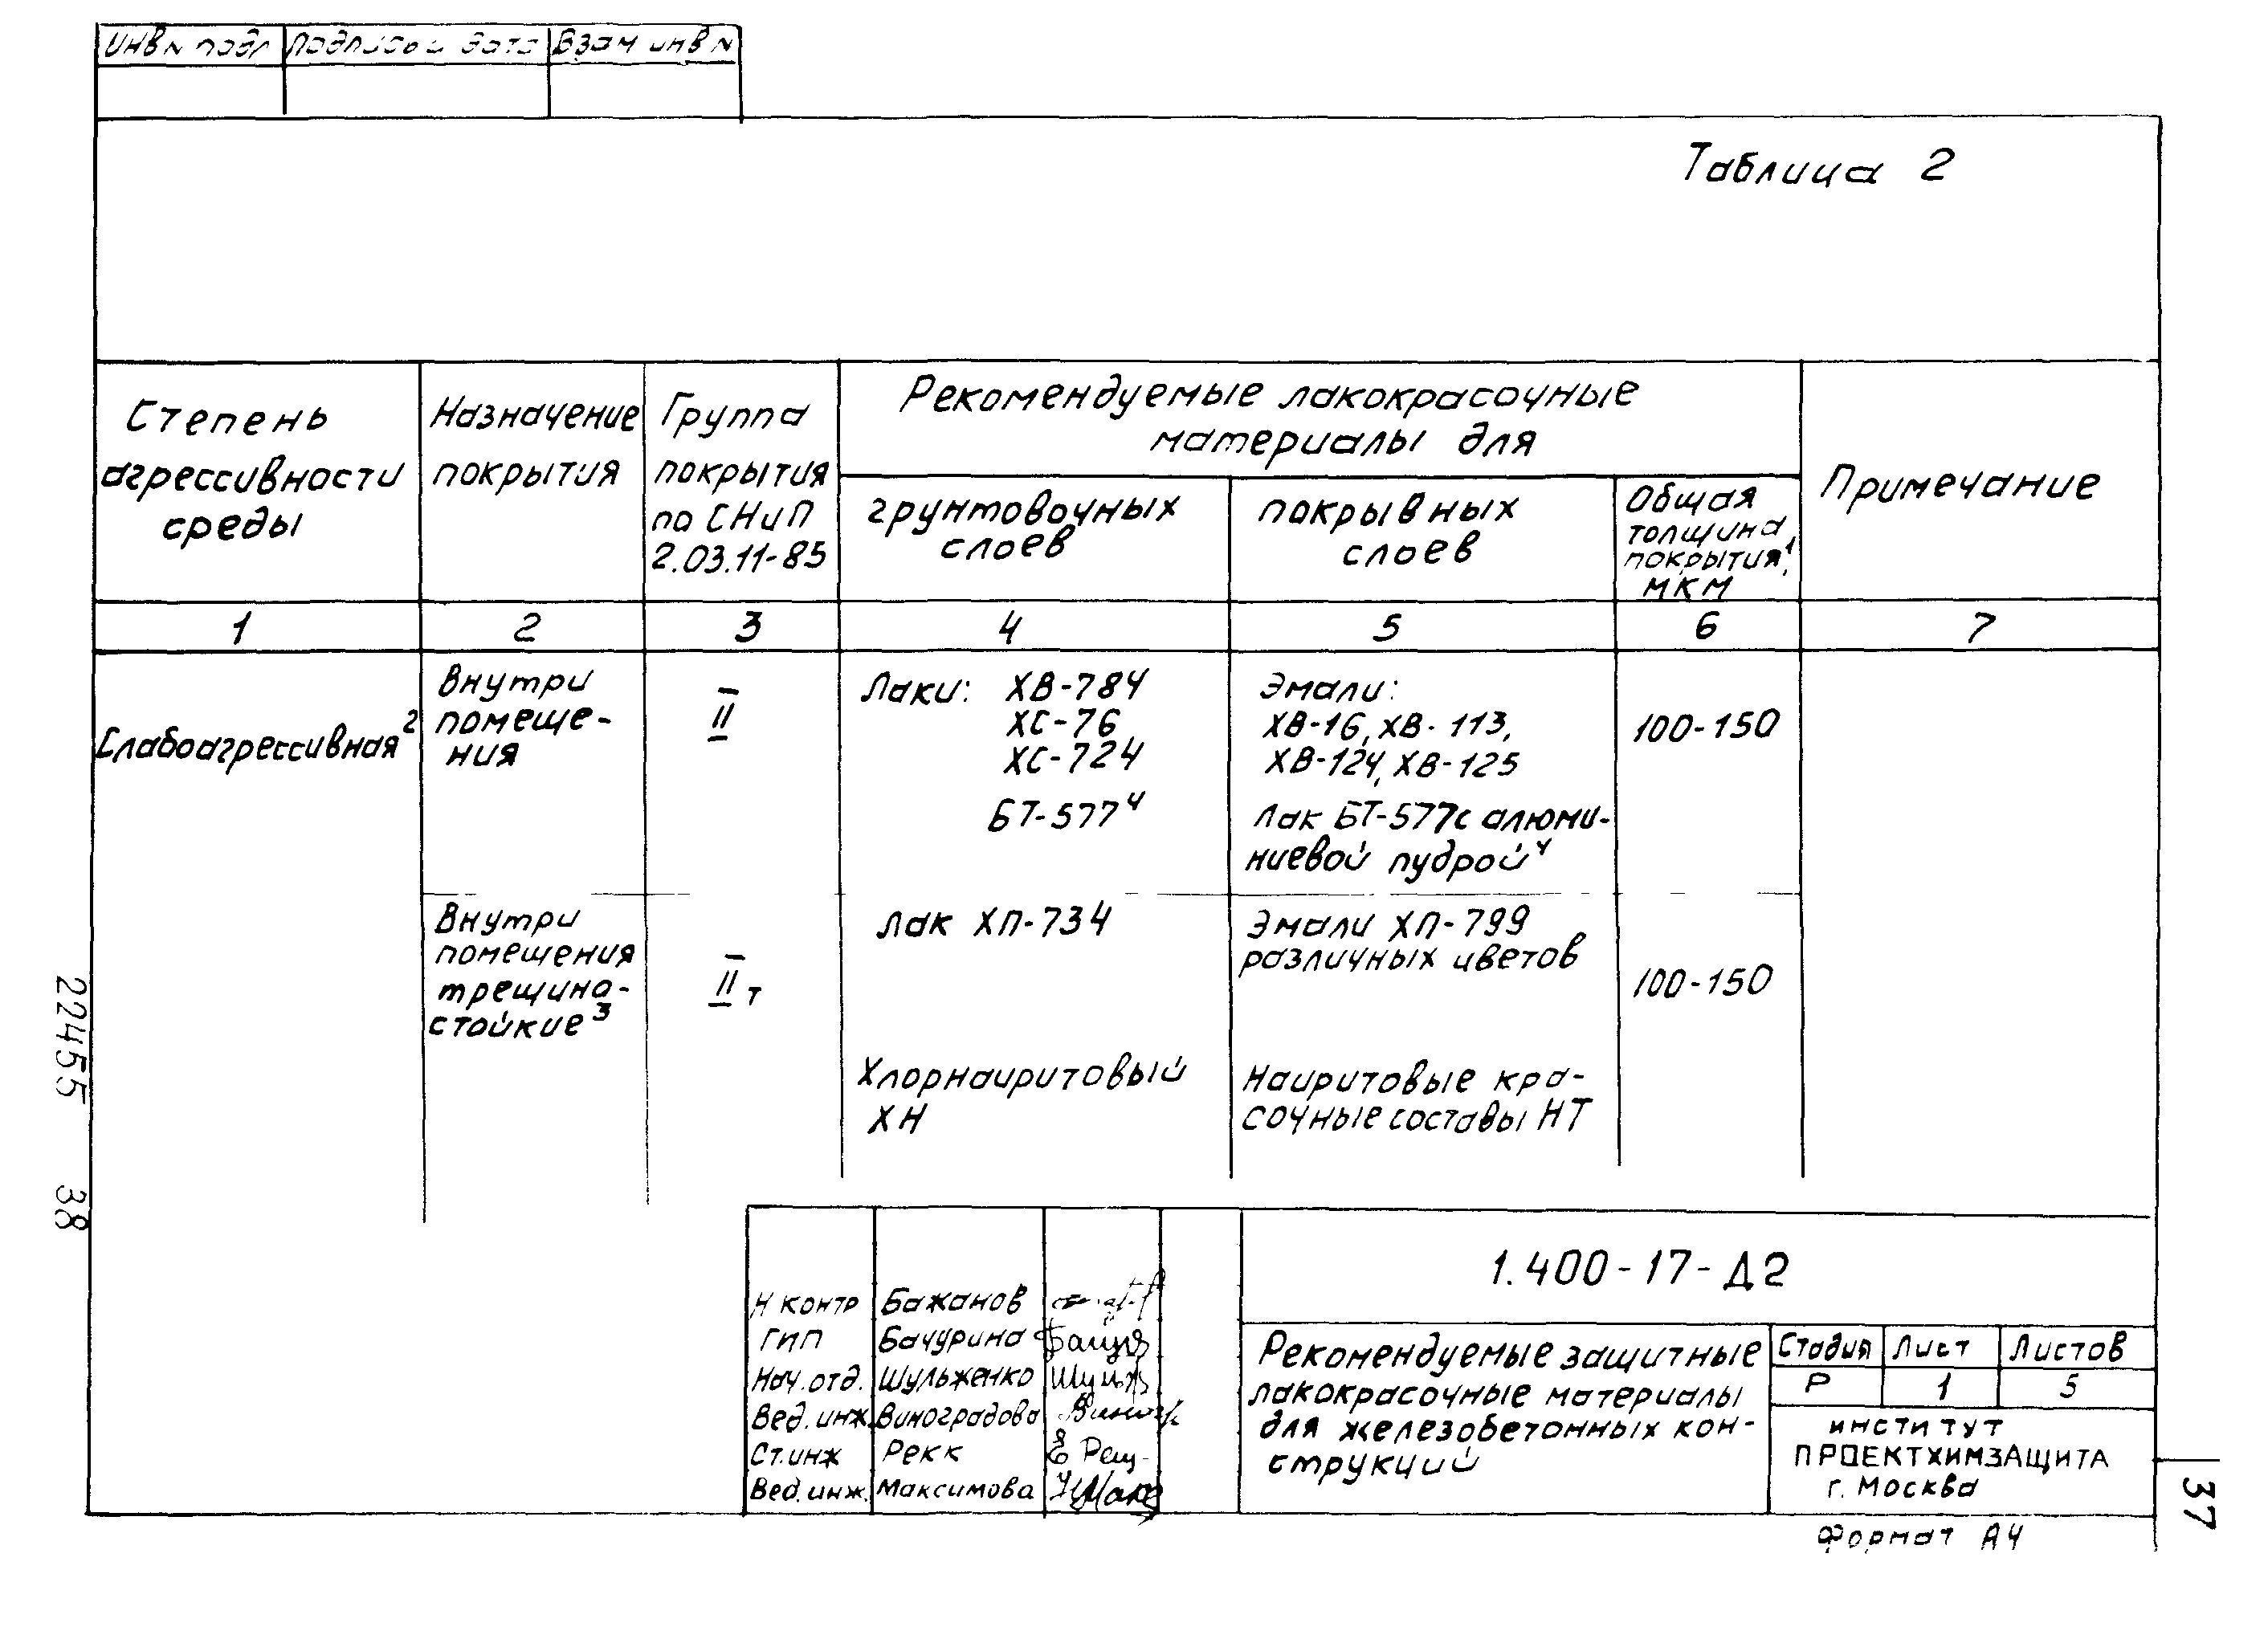 Инв N подл Подпись и дата Взам инв N
Таблица 2
Степень агрессивности среды
Назначение покрытия
Группа покрытия по СНиП 2.03.11-85
Рекомендуемые лакокрасочные
материалы для
грунтовочных
слоев
покрывных
слоев
Общая
толщина
покрытия¹,
мкм
Примечание
1 2 3 4 5 6 7
Слабоагрессивная²
Внутри
помеще-
ния
II
Лаки: ХВ-784
ХС-76
ХС-724
БТ-577⁴
Эмали:
ХВ-16, ХВ-113,
ХВ-124, ХВ-125
Лак БТ-577с алюми-
ниевой пудрой⁴
100-150
Внутри
помещения
трещино-
стойкие³
IIт
Лак ХП-734
Хлорнаиритовый
ХН
Эмали ХП-799
различных цветов
Наиритовые кра-
сочные составы НТ
100-150
22455 38
1.400-17-Д2
Н контр Бажанов
ГИП Бачурина
Нач.отд. Шульженко
Вед.инж. Виноградова
Ст.инж Рекк
Вед.инж. Максимова
Рекомендуемые защитные
лакокрасочные материалы
для железобетонных кон-
струкций
Стадия Лист Листов
Р 1 5
институт
ПРОЕКТХИМЗАЩИТА
г. Москва
Формат А4
37